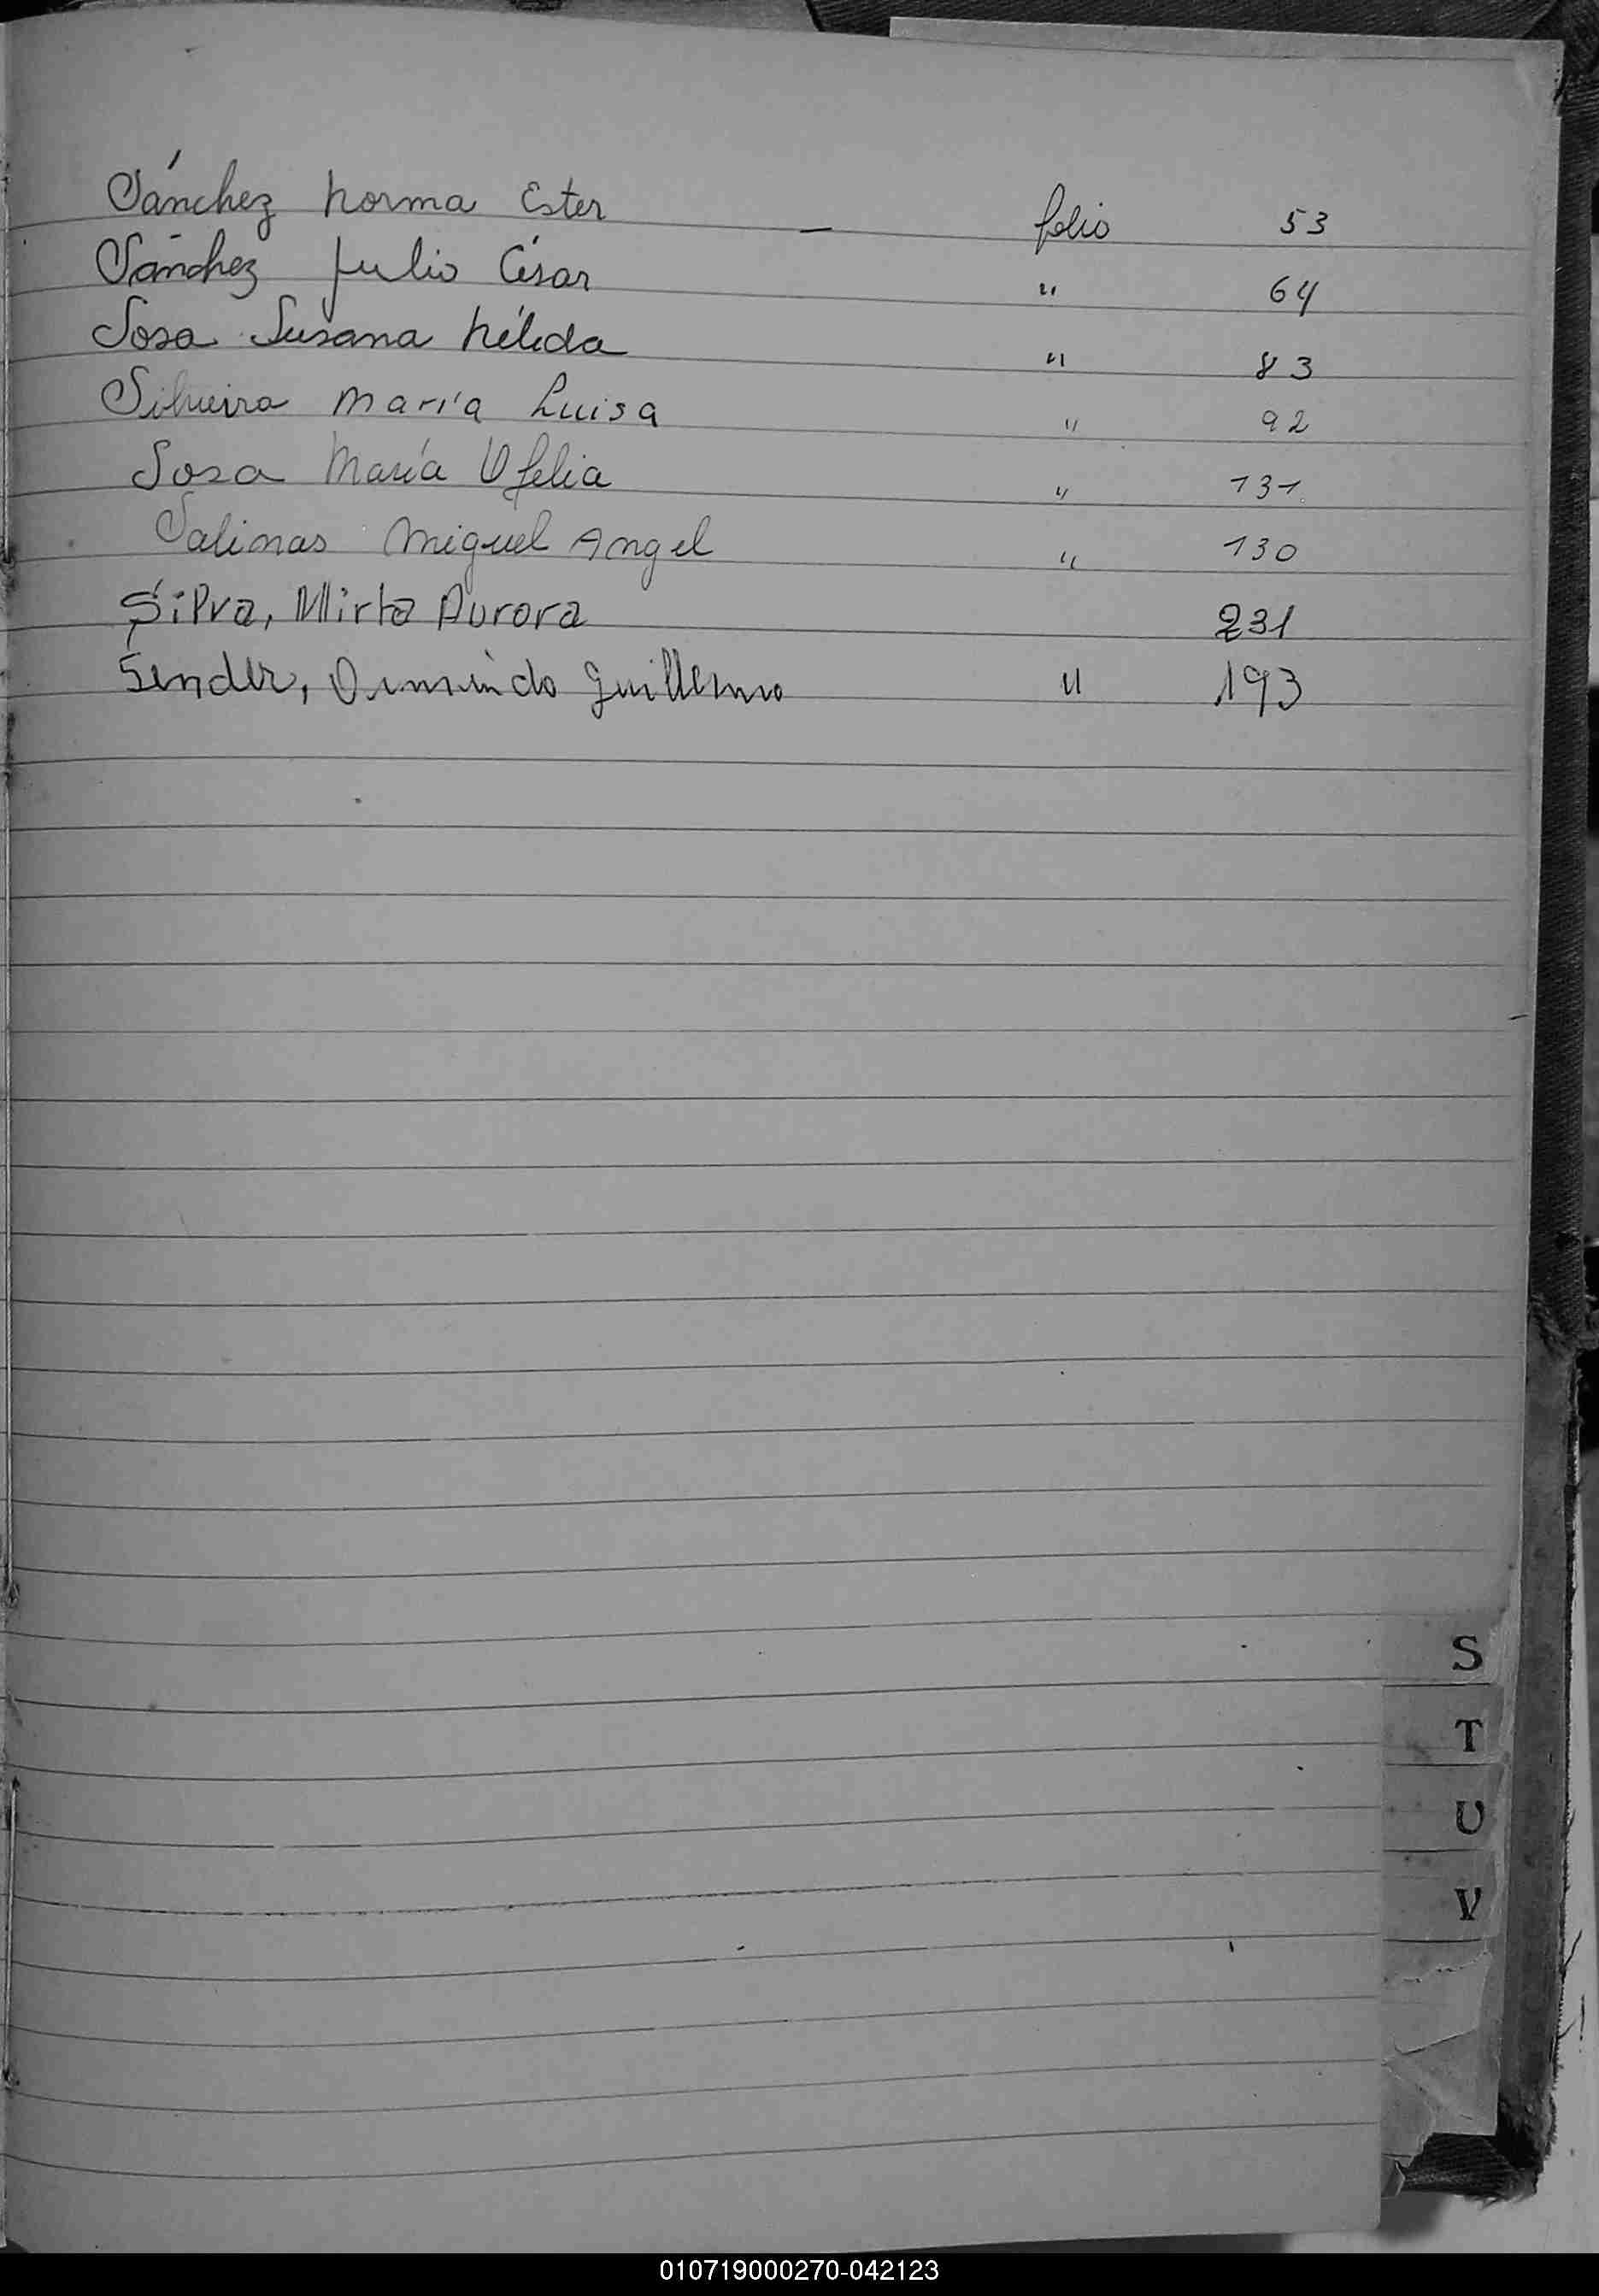 Sánchez Norma Ester — folio 53
Sánchez Julio César " 64
Sosa Susana Nélida " 83
Silveira María Luisa " 92
Sosa María Ofelia " 131
Salinas Miguel Angel " 130
Silva, Mirta Aurora 231
Sender, Guillermo " 193
S
T
U
V
010719000270-042123